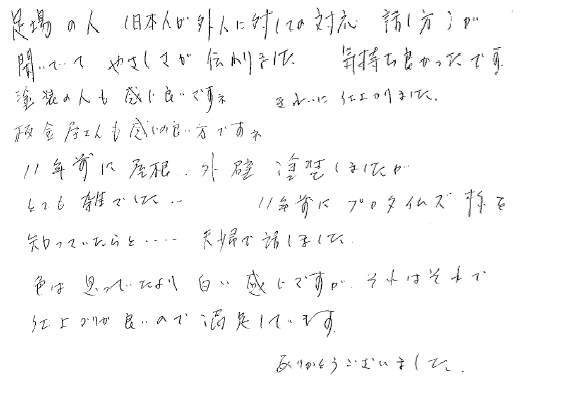 足場の人（日本人が外人に対しての対応 話し方）が
聞いていて やさしさが伝わりました 気持ち良かったです
塗装の人も感じ良いですネ きれいに仕上りました。
板金屋さんも感じの良い方ですネ
11年前に屋根、外壁 塗装しましたが
とても雑でした… 11年前にプロタイムズ 様を
知っていたらと‥‥ 夫婦で話しました。
色は思っていたより白い感じですが、それはそれで
仕上がりが良いので満足しています。
ありがとうございました。